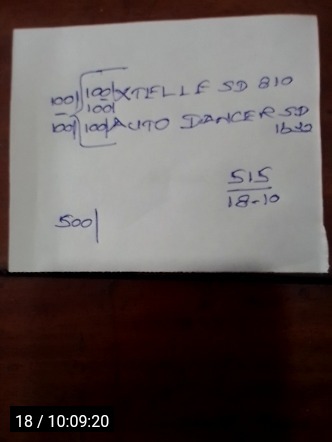 100| 100| XTELLE SD 810
100
100| 100| AUTO DANCER SD
1620
515
18-10
500|
18 / 10:09:20